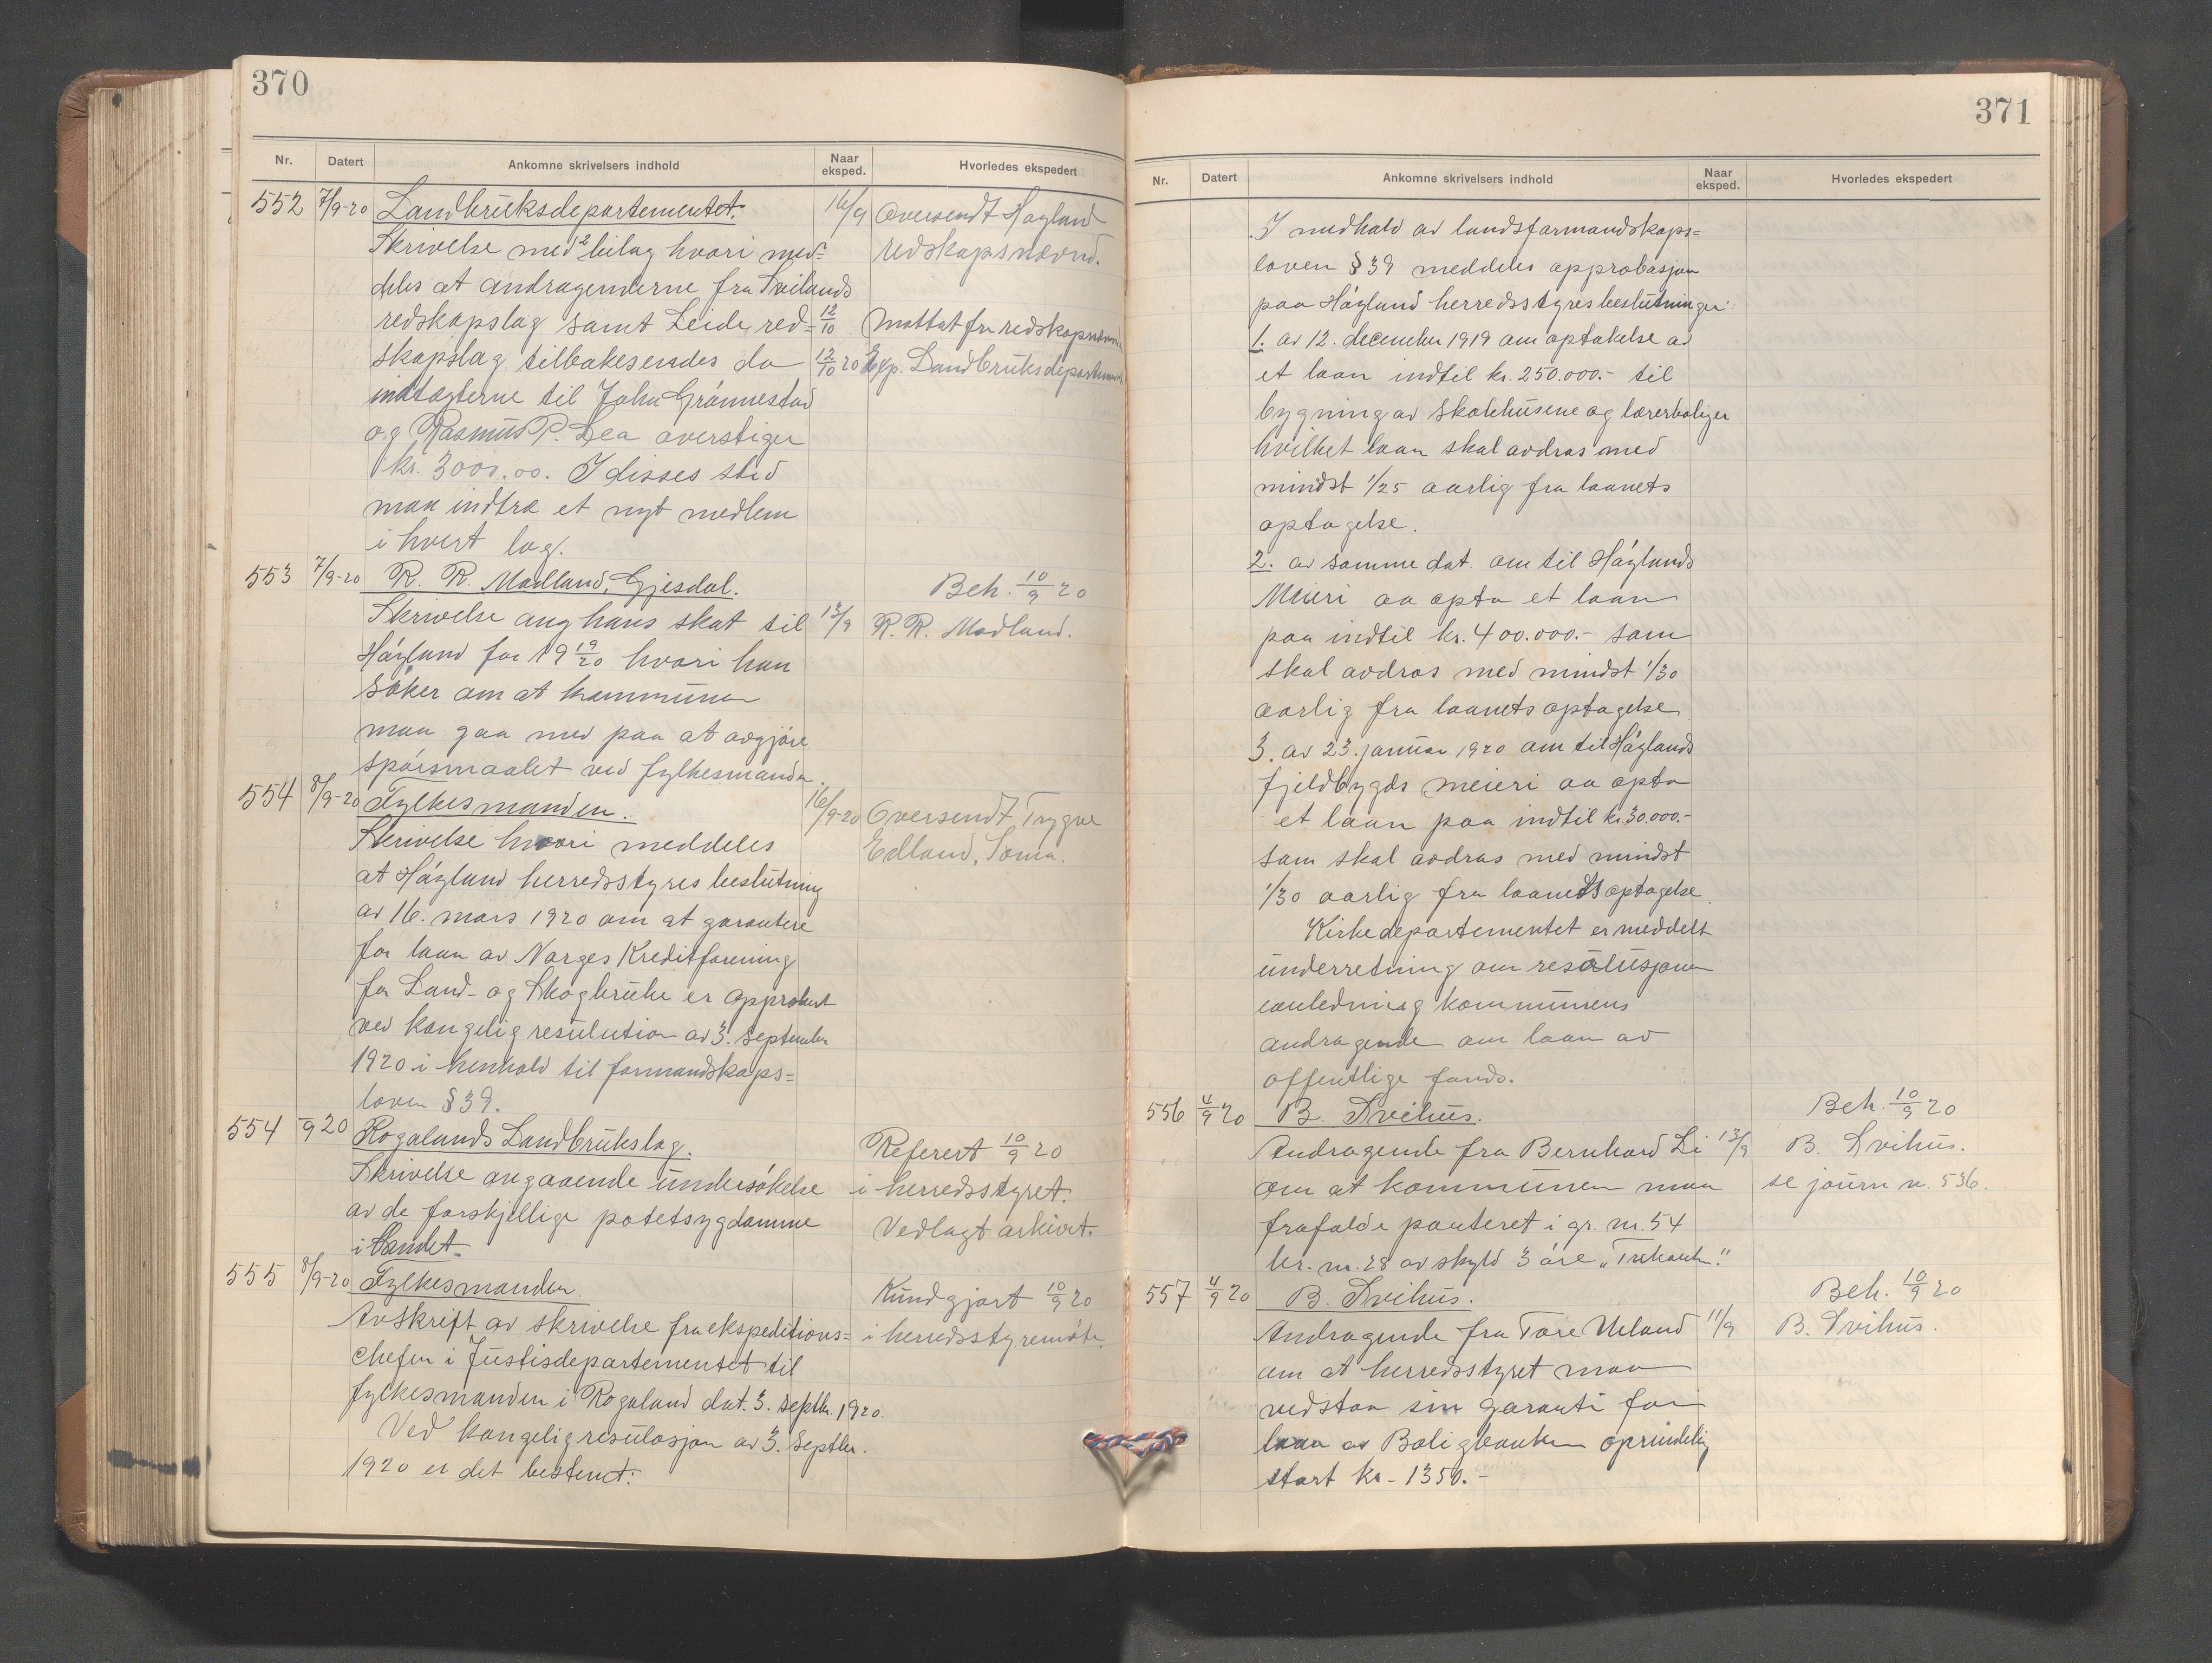 370
Nr. Datert Ankomne skrivelsers indhold Naar eksped. Hvorledes ekspedert
552 7/9-20 Landbruksdepartementet. 16/9 Oversendt Høyland
Skrivelse med 2 bilag hvori med- redskapsnævnd.
deles at andragenderne fra Sviland
redskapslag samt Leide red- 12/10 Mottat fra redskapsnævnd
skapslag tilbakesendes da 12/10 20 Exp. Landbruksdepartement
indtægterne til John Grønnestad
og Rasmus P. Lea overstiger
kr. 3000.00. I disses sted
maa indtræ et nyt medlem
i hvert lag.
553 7/9-20 R. R. Madland, Gjesdal. Beh. 10/9 20
Skrivelse ang hans skat til 13/9 R. R. Madland.
Høyland for 1919/20 hvori han
søker om at kommunen
maa gaa med paa at avgjøre
spørsmaalet ved fylkesmanden.
554 8/9-20 Fylkesmanden. 16/9-20 Oversendt Trygve
Skrivelse hvori meddeles Edland, Soma.
at Høyland herredsstyres beslutning
av 16. mars 1920 om at garantere
for laan av Norges Kreditforening
for Land- og Skogbruke er approbert
ved kongelig resulution av 3. september
1920 i henhold til formandskaps-
loven § 39.
554 -/9 20 Rogalands Landbrukslag. Referert 10/9 20
Skrivelse angaaende undersøkelse i herredsstyret.
av de forskjellige potetsygdomme Vedlagt arkivet.
i landet.
555 8/9-20 Fylkesmanden. Kundgjort 10/9 20
Avskrift av skrivelse fra ekspeditions- i herredsstyremøte.
chefen i Justisdepartementet til
fylkesmanden i Rogaland dat. 3. septbr. 1920.
Ved kongelig resulosjon av 3. septbr.
1920 er det bestemt:
371
Nr. Datert Ankomne skrivelsers indhold Naar eksped. Hvorledes ekspedert
I medhold av landsformandskaps-
loven § 39 meddeles approbasjon
paa Høyland herredsstyres beslutninger:
1. av 12. december 1919 om optakelse av
et laan indtil kr. 250.000.- til
bygning av skolehusene og lærerboliger
hvilket laan skal avdras med
mindst 1/25 aarlig fra laanets
optagelse.
2. av samme dat. om til Høylands
Meieri aa opta et laan
paa indtil kr. 400.000.- som
skal avdras med mindst 1/30
aarlig fra laanets optagelse.
3. av 23. januar 1920 om til Høylands
fjeldbygds meieri aa opta
et laan paa indtil kr. 30.000.-
som skal avdras med mindst
1/30 aarlig fra laanets optagelse.
Kirkedepartementet er meddelt
underretning om resolusjonen
ianledning kommunens
andragende om laan av
offentlige fonds.
556 4/9 20 B. Svihus. Beh. 10/9 20
Andragende fra Bernhard Li 13/9 B. Svihus.
om at kommunen maa se journ n. 536.
frafalde panteret i gr. nr. 54
br. nr. 28 av skyld 3 øre „Trekanten."
557 4/9 20 B. Svihus. Beh. 10/9 20
Andragende fra Tore Ueland 11/9 B. Svihus.
om at herredsstyret maa
vedstaa sin garanti for
laan av Boligbanken oprindelig
stort kr. 1350.-